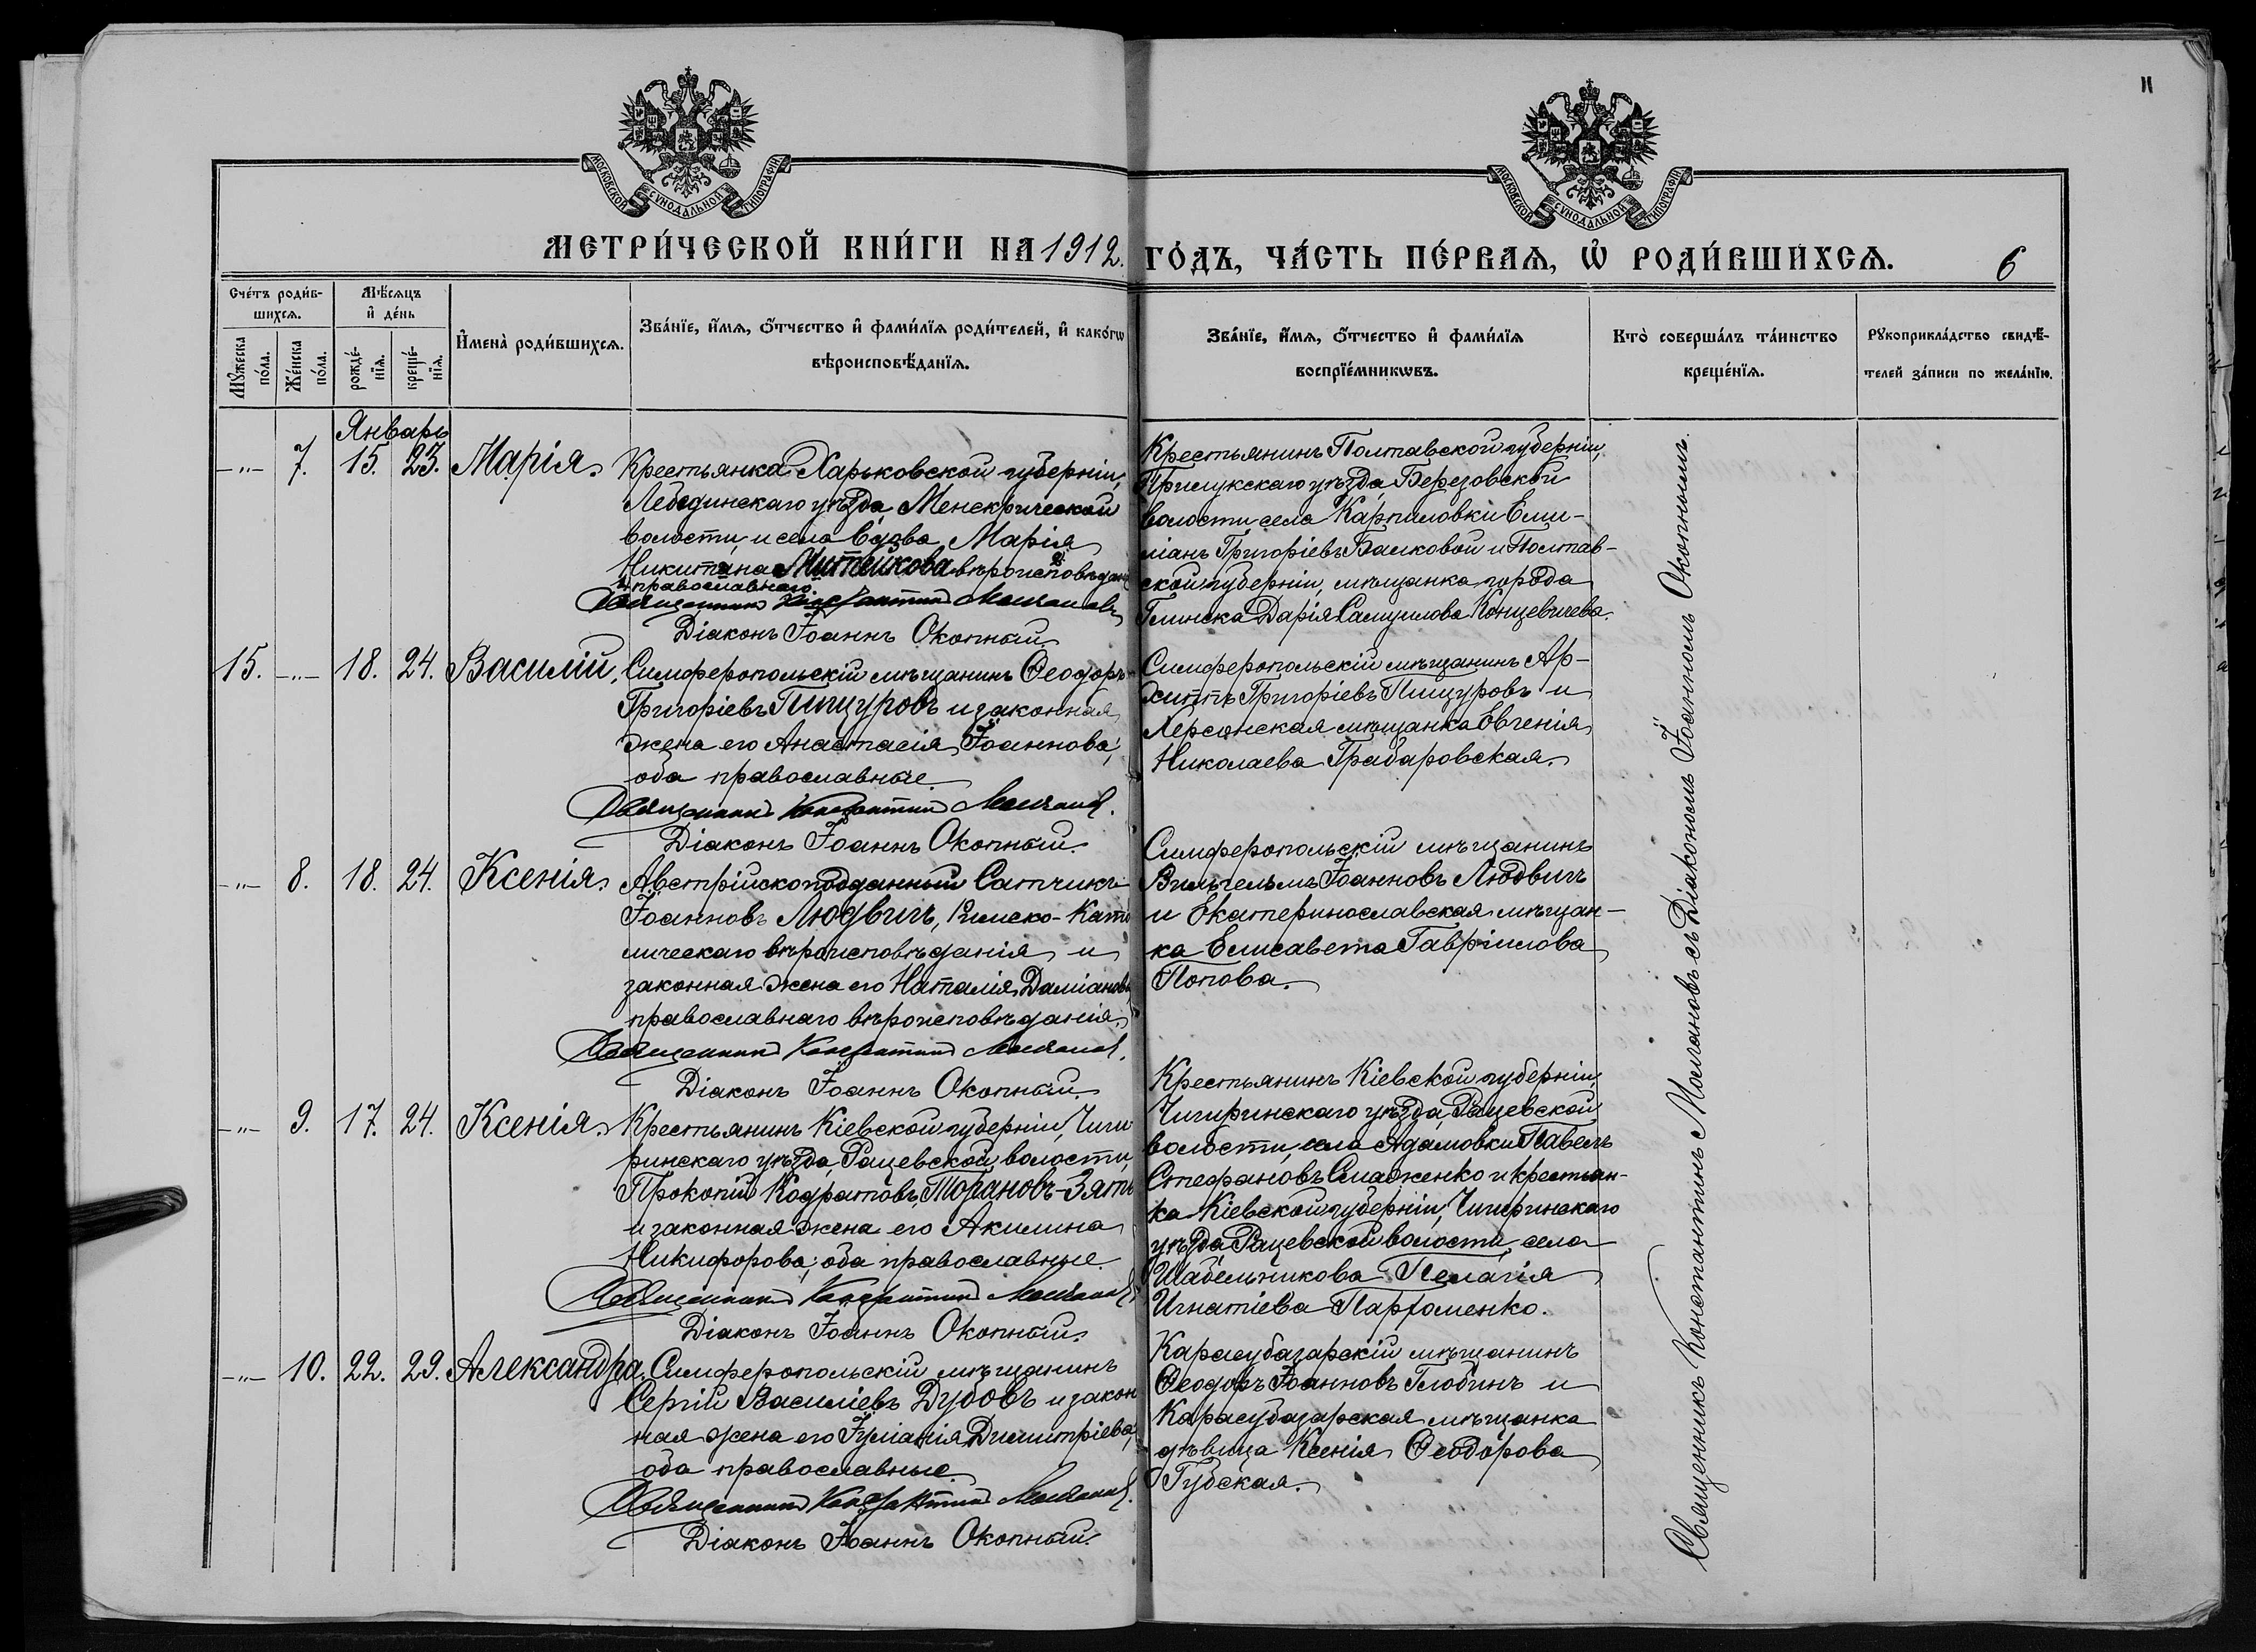 11
МОСКОВСКОЙ СѴНОДАЛЬНОЙ ТИПОГРАФІИ
МОСКОВСКОЙ СѴНОДАЛЬНОЙ ТИПОГРАФІИ
МЕТРИ́ЧЕСКОЙ КНИ́ГИ НА 1912. ГО́ДЪ, ЧА́СТЬ ПЕ́РВАѦ, Ѽ РОДИ́ВШИХСѦ. 6
Сче́тъ роди́в-
шихсѧ.
Мꙋ́жеска по́ла.
Же́нска по́ла.
Мѣ́сѧцъ и҆ де́нь
рожде́-нїѧ.
креще́-нїѧ.
И҆мена̀ роди́вшихсѧ.
Зва́нїе, и҆́мѧ, ѻ҆́тчество и҆ фами́лїѧ роди́телей, и҆ како́гѡ
вѣроисповѣ́данїѧ.
Зва́нїе, и҆́мѧ, ѻ҆́тчество и҆ фами́лїѧ
воспрїе́мникѡвъ.
Кто̀ соверша́лъ та́инство
креще́нїѧ.
Рꙋкоприкла́дство свидѣ́-
телей за́писи по жела́нїю.
Январь
-"- 7. 15. 23. Марія.
Крестьянка Харьковской губерніи,
Лебединскаго уѣзда,
волости, и села Марія
Никитина вѣроисповѣдан
православнаго.
Священникъ Константинъ Молчановъ
Діаконъ Іоаннъ Окопный.
Крестьянинъ Полтавской губерніи,
Прилукскаго уѣзда, Березовской
волости, села Карпиловки Еми-
ліанъ Григоріевъ и Полтав-
ской губерніи, мѣщанка города
Глинска Дарія Самуилова Концевичева.
15. -"- 18. 24. Василій.
Симферопольскій мѣщанинъ Ѳеодоръ
Григоріевъ Пищуровъ и законная
жена его Анастасія Іоаннова;
оба православные.
Священникъ Константинъ Молчановъ.
Діаконъ Іоаннъ Окопный.
Симферопольскій мѣщанинъ Ар-
хиппъ Григоріевъ Пищуровъ и
Херсонская мѣщанка Евгенія
Николаева Грабаровская.
-"- 8. 18. 24. Ксенія.
Австрійскоподданный
Іоанновъ Людвигъ, Римско-Като
лическаго вѣроисповѣданія и
законная жена его Наталія Даміанова
православнаго вѣроисповѣданія.
Священникъ Константинъ Молчановъ.
Діаконъ Іоаннъ Окопный.
Симферопольскій мѣщанинъ
Вильгельмъ Іоанновъ Людвигъ
и Екатеринославская мѣщан-
ка Елисавета Гавріилова
Попова.
-"- 9. 17. 24. Ксенія.
Крестьянинъ Кіевской губерніи, Чиги
ринскаго уѣзда, Рацевской волости,
Прокопій Кодратовъ, Торановъ-Зять
и законная жена его Акилина
Никифорова; оба православные.
Священникъ Константинъ Молчановъ
Діаконъ Іоаннъ Окопный.
Крестьянинъ Кіевской губерніи,
Чигиринскаго уѣзда, Рацевской
волости, села Адамовки Павелъ
Стефановъ и крестьян-
ка Кіевской губерніи, Чигиринскаго
уѣзда, Рацевской волости, села
Шабельникова Пелагія
Игнатіева Парфоменко.
-"- 10. 22. 29. Александра.
Симферопольскій мѣщанинъ
Сергій Василіевъ Дубовъ и закон
ная жена его Іуліанія Димитріева;
оба православные.
Священникъ Константинъ Молчановъ.
Діаконъ Іоаннъ Окопный.
Карасубазарскій мѣщанинъ
Ѳеодоръ Іоанновъ Глобинъ и
Карасубазарская мѣщанка
дѣвица Ксенія Ѳеодорова
Губская.
Священникъ Константинъ Молчановъ съ Діакономъ Іоанномъ Окопнымъ.